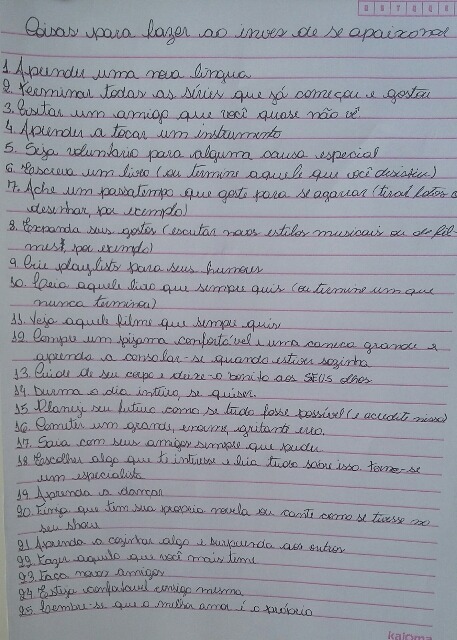 Coisas para fazer ao inves de se apaixonar
1 Aprender uma nova língua
2. Terminar todas as séries que já começou e gostou
3. Visitar um amigo que você quase não vê.
4. Aprender a tocar um instrumento
5. Seja voluntário para alguma causa especial
6. Escreva um livro (ou termine aquele que você desistiu)
7. Ache um passatempo que goste para se agarrar (tirar fotos o
desenhar, por exemplo)
8. Expanda seus gostos (escutar novos estilos musicais ou de fil-
mes, por exemplo)
9. Crie playlists para seus humores
10. Leia aquele livro que sempre quis (ou termine um que
nunca terminou)
11. Veja aquele filme que sempre quis
12. Compre um pijama confortável e uma caneca grande e
aprenda a consolar-se quando estiver sozinha
13. Cuide de seu corpo e deixe-o bonito aos SEUS olhos
14. Durma o dia inteiro, se quiser.
15. Planeje seu futuro como se tudo fosse possível (e acredite nisso)
16. Cometer um grande, enorme, gritante erro.
17. Saia com seus amigos sempre que puder
18 Escolher algo que te interesse e leia tudo sobre isso. Torne-se
um especialista
19 Aprenda a dançar
20. Finja que tem sua própria novela ou cante como se tivesse no
seu show
21 Aprenda a cozinhar algo e surpreenda aos outros
22. Fazer aquilo que você mais teme
23. Faça novos amigos
24. Esteja confortável consigo mesma
25. Lembre-se que o melhor amor é o próprio
kaloma